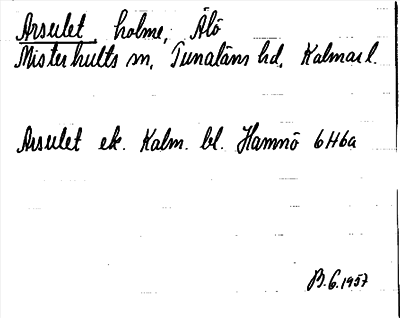 Arsulet, holme, Älö
Misterhults sn, Tunaläns hd, Kalmar l.
Arsulet ek. Kalm. bl. Hamnö 6H6a
B.G. 1957